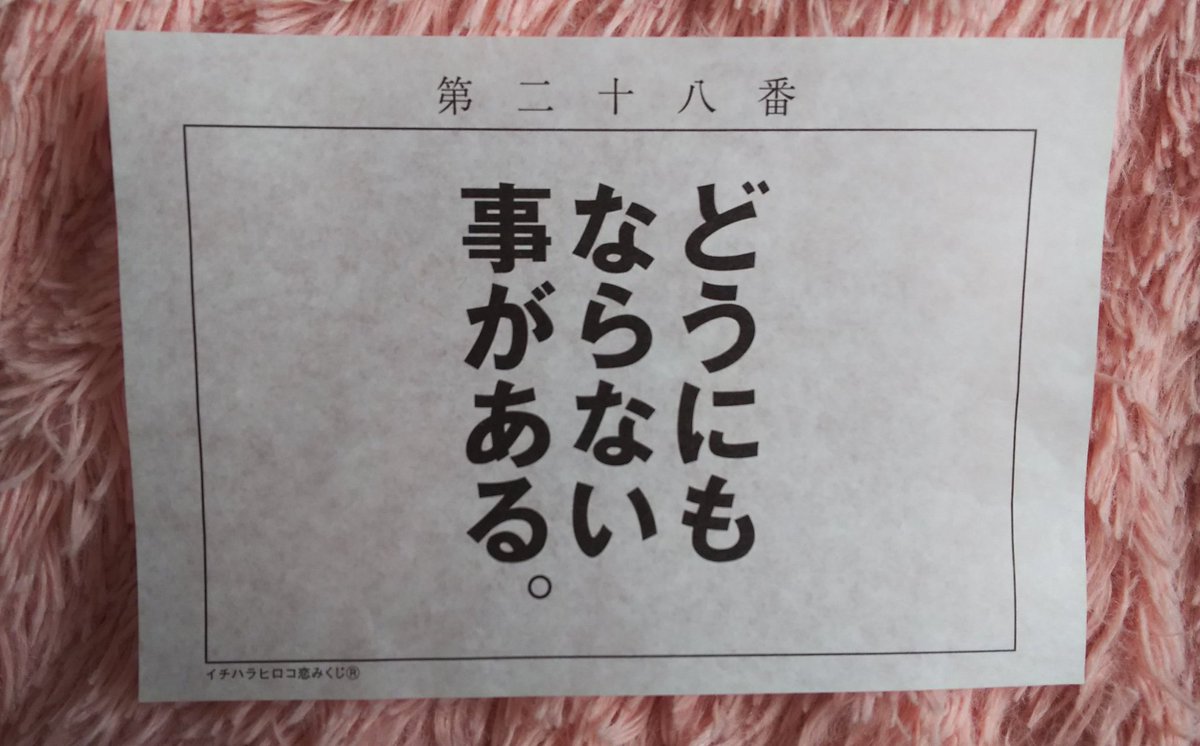 第二十八番
どうにも
ならない
事がある。
イチハラヒロコ恋みくじ®